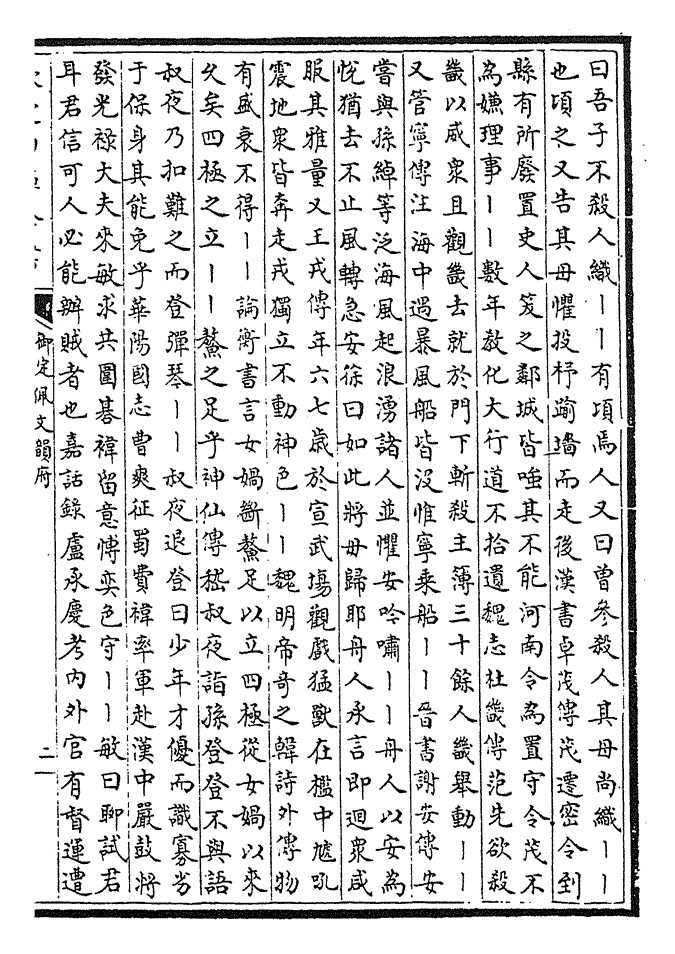 曰吾子不殺人織丨丨有頃焉人又曰曽參殺人其母尚織丨丨
也頃之又告其母懼投杼踰墻而走後漢書卓茂傳茂遷密令到
縣有所廢置吏人笑之鄰城皆嗤其不能河南令為置守令茂不
為嫌理事丨丨數年教化大行道不拾遺魏志杜畿傳范先欲殺
畿以威衆且觀畿去就於門下斬殺主簿三十餘人畿舉動丨丨
又管寧傳注海中遇暴風船皆沒惟寧乘船丨丨晉書謝安傳安
嘗與孫綽等泛海風起浪湧諸人並懼安吟嘯丨丨舟人以安為
悅猶去不止風轉急安徐曰如此將毋歸耶舟人承言即迴衆咸
服其雅量又王戎傳年六七歲於宣武塲觀戲猛獸在檻中虓吼
震地衆皆奔走戎獨立不動神色丨丨魏明帝奇之韓詩外傳物
有盛衰不得丨丨論衡書言女媧斷鰲足以立四極從女媧以來
乆矣四極之立丨丨鰲之足乎神仙傳嵇叔夜詣孫登登不與語
叔夜乃扣難之而登彈琴丨丨叔夜退登曰少年才優而識寡劣
于保身其能免乎華陽國志曹爽征蜀費禕率軍赴漢中嚴鼓將
發光禄大夫來敏求共圍碁禕留意愽奕色守丨丨敏曰聊試君
耳君信可人必能辦賊者也嘉話錄盧承慶考内外官有督運遭
御定佩文韻府
二